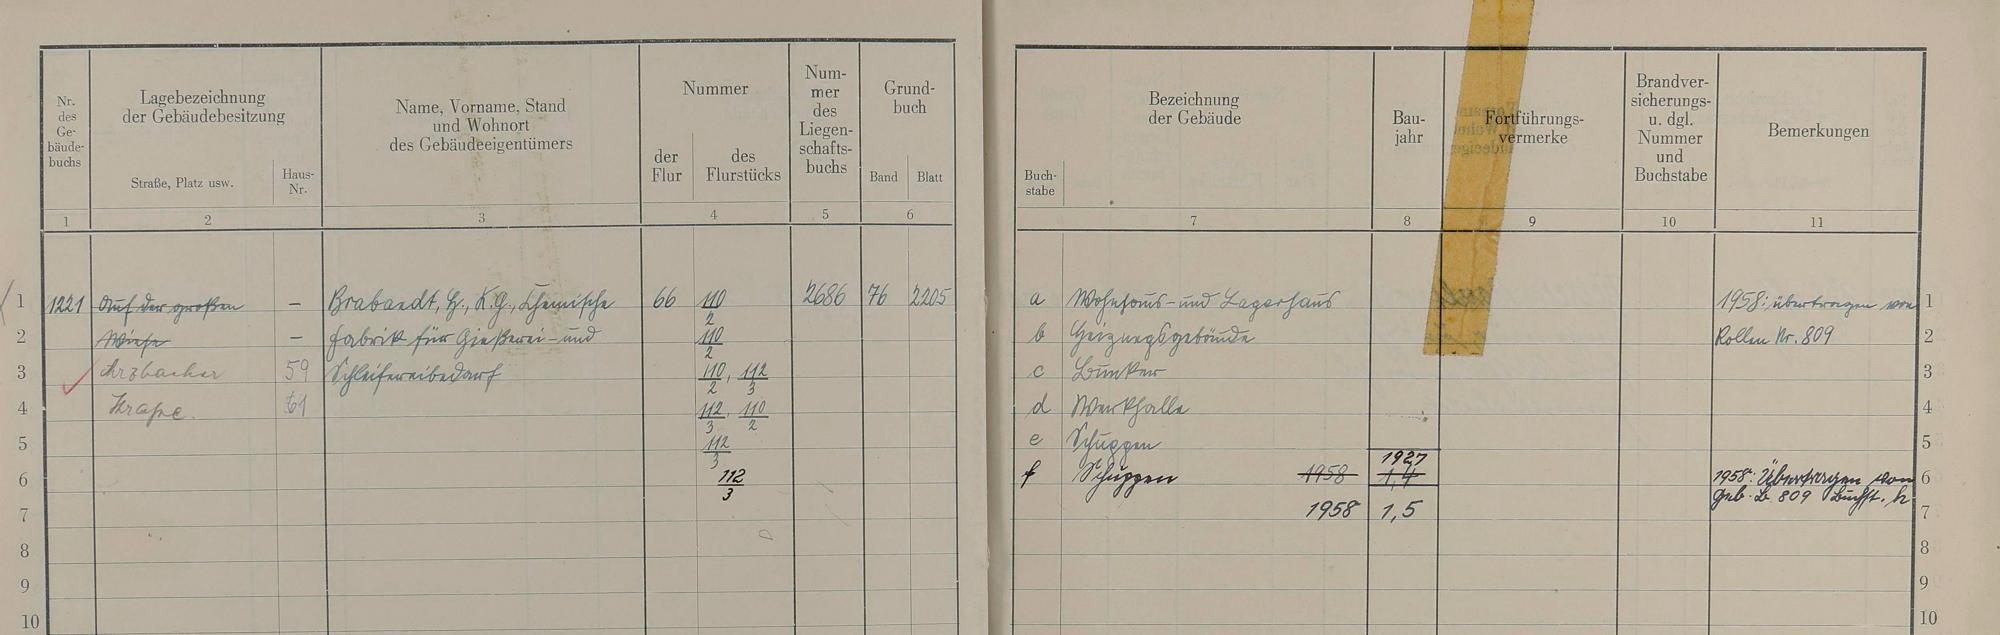 Nr.
des
Ge-
bäude-
buchs
Lagebezeichnung
der Gebäudebesitzung
Straße, Platz usw.
Haus-
Nr.
Name, Vorname, Stand
und Wohnort
des Gebäudeeigentümers
Nummer
der
Flur
des
Flurstücks
Num-
mer
des
Liegen-
schafts-
buchs
Grund-
buch
Band
Blatt
1 2 3 4 5 6
1 1221 Auf der großen – Brabandt, H., K.G., Chemische 66 110/2 2686 76 2205
2 Wiese – Fabrik für Gießerei- und 110/2
3 59 Schleifereibedarf 110/2, 112/3
4 61 112/3, 110/2
5 112/3
6 112/3
7
8
9
10
Bezeichnung
der Gebäude
Buch-
stabe
Bau-
jahr
Fortführungs-
vermerke
Brandver-
sicherungs-
u. dgl.
Nummer
und
Buchstabe
Bemerkungen
7 8 9 10 11
a Wohnhaus- und Lagerhaus 1958: übertragen von 1
b Heizungsgebäude Rollen Nr. 809 2
c Bunker 3
d Werkhalle 4
e Schuppen 5
1927
f Schuppen 1958 1,4 1958: Übertragen von 6
Geb. B. 809 Buchst. h
1958 1,5 7
8
9
10